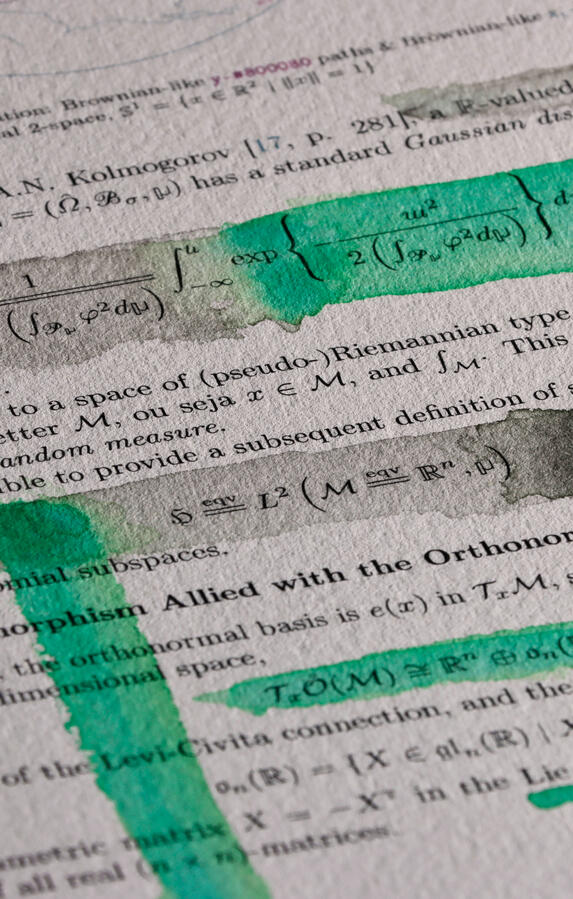 tion: Brownian-like y-s800080 paths & Brownian-like x,
al 2-space, 𝕊¹ = {x ∈ ℝ² | ||x|| = 1}
A.N. Kolmogorov [17, p. 281], a ℝ-valued
= (Ω̂, ℬσ, 𝕌) has a standard Gaussian dis
1 / (∫ φ²d𝕌) ∫_{-∞}^{u} exp { − w² / 2 (∫ φ²d𝕌) } d
to a space of (pseudo-)Riemannian type
etter ℳ, ou seja x ∈ ℳ, and ∫_ℳ. This
andom measure.
ble to provide a subsequent definition of s
ℌ eqv== L² (ℳ eqv== ℝⁿ, 𝕌)
omial subspaces.
norphism Allied with the Orthonor
, the orthonormal basis is e(x) in 𝒯ₓℳ, s
dimensional space,
𝒯ₓO(ℳ) ≅ ℝⁿ ⊕ 𝔬ₙ(
of the Levi-Civita connection, and the
𝔬ₙ(ℝ) = {X ∈ 𝔤𝔩ₙ(ℝ) | X
ametric matrix X = −Xᵀ in the Lie
f all real (n × n)-matrices.